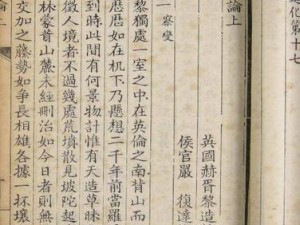 化第十七
論上
英國赫胥黎造
侯官嚴 復達
一 察變
黎獨處一室之中在英倫之南背山而
歷歷如在机下乃懸想二千年前當羅
到時此間有何景物計惟有天造草昧
徵人境者不過幾處荒墳散見坡陀起
林蒙茸山麓未經刪治如今日者則無
交加之藤勢如爭長相雄各據一抔壤